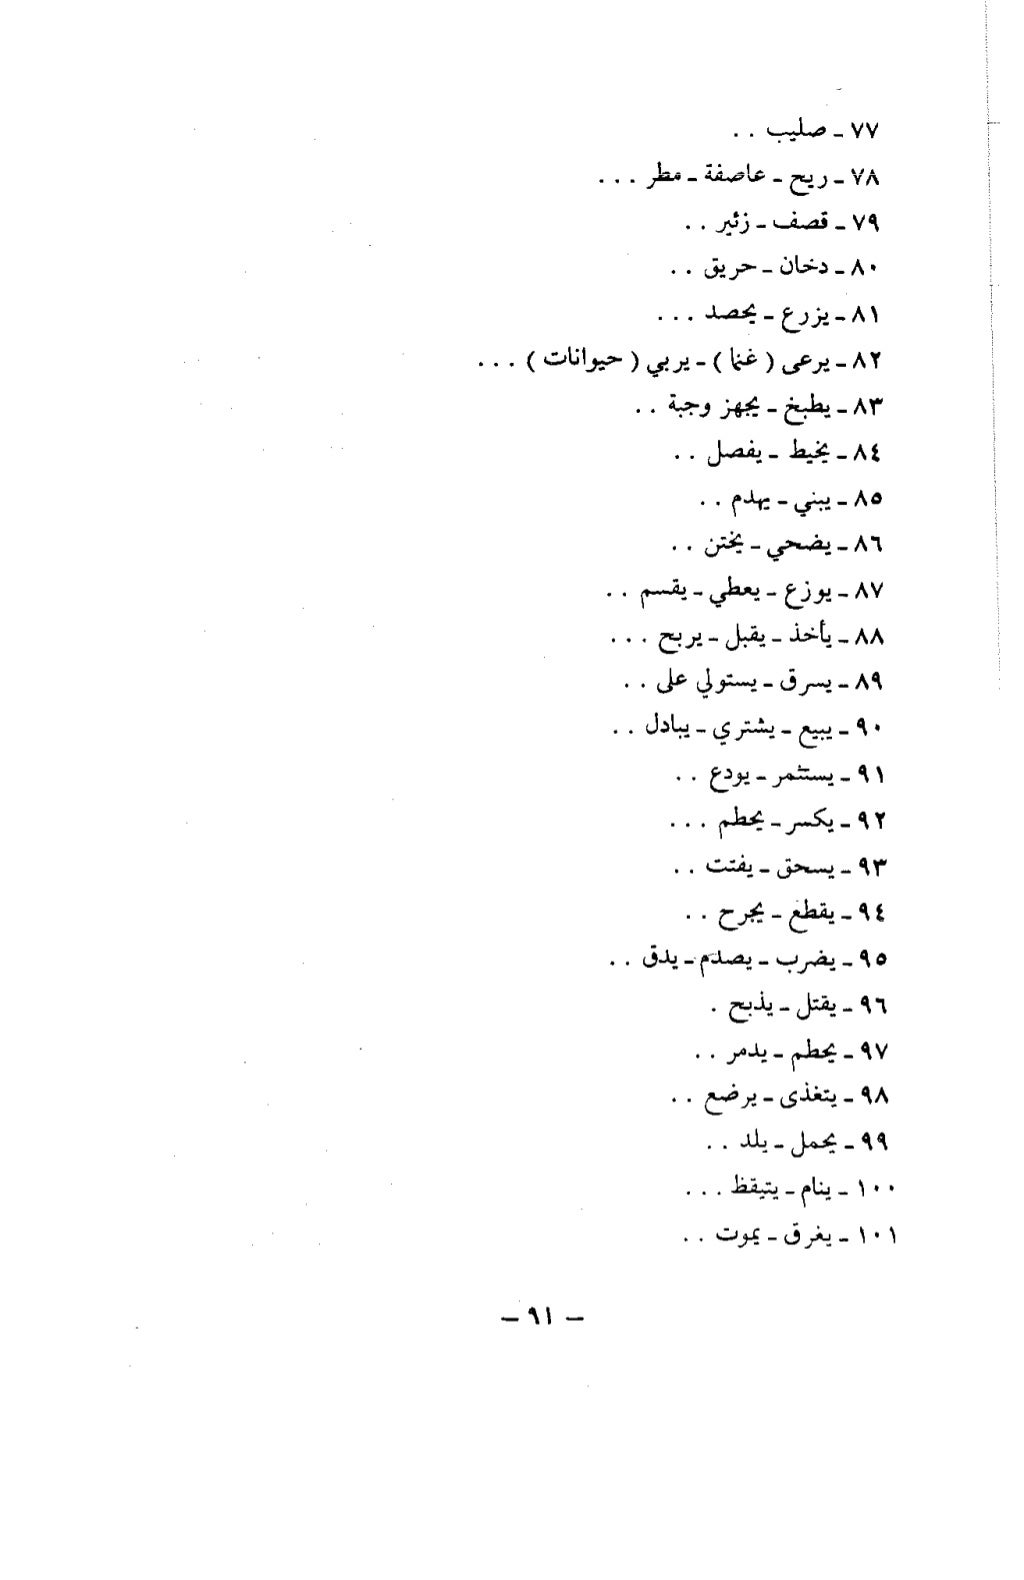 ٧٧ ـ صليب . .
٧٨ ـ ريح ـ عاصفة ـ مطر . . .
٧٩ ـ قصف ـ زئير . .
٨٠ ـ دخان ـ حريق . .
٨١ ـ يزرع ـ يحصد . . .
٨٢ ـ يرعى ( غنما ) ـ يربي ( حيوانات ) . . .
٨٣ ـ يطبخ ـ يجهز وجبة . .
٨٤ ـ يخيط ـ يفصل . .
٨٥ ـ يبني ـ يهدم . .
٨٦ ـ يضحي ـ يختن . .
٨٧ ـ يوزع ـ يعطي ـ يقسم . .
٨٨ ـ يأخذ ـ يقبل ـ يربح . . .
٨٩ ـ يسرق ـ يستولي على . .
٩٠ ـ يبيع ـ يشتري ـ يبادل . .
٩١ ـ يستثمر ـ يودع . .
٩٢ ـ يكسر ـ يحطم . . .
٩٣ ـ يسحق ـ يفتت . .
٩٤ ـ يقطع ـ يجرح . .
٩٥ ـ يضرب ـ يصدم ـ يدق . .
٩٦ ـ يقتل ـ يذبح .
٩٧ ـ يحطم ـ يدمر . .
٩٨ ـ يتغذى ـ يرضع . .
٩٩ ـ يحمل ـ يلد . .
١٠٠ ـ ينام ـ يتيقظ . . .
١٠١ ـ يغرق ـ يموت . .
– ٩١ –